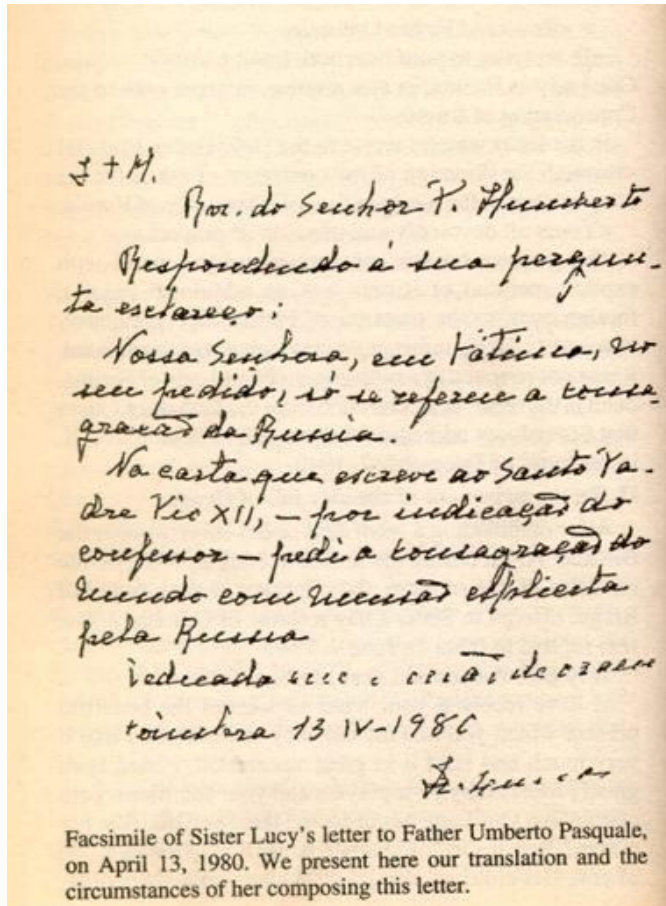 J + M.
Rvr. do Senhor P. Humberto
Respondendo á sua pergun-
ta esclareço:
Nossa Senhora, em Fátima, no
seu pedido, só se refere a consa-
gração da Russia.
Na carta que escreve ao Santo Pa-
dre Pio XII, – por indicação do
confessor – pedi a consagração do
mundo com mensão esplicita
pela Russia
Dedicada em de
Coimbra 13 IV–1980
Ir. Lucia
Facsimile of Sister Lucy's letter to Father Umberto Pasquale,
on April 13, 1980. We present here our translation and the
circumstances of her composing this letter.